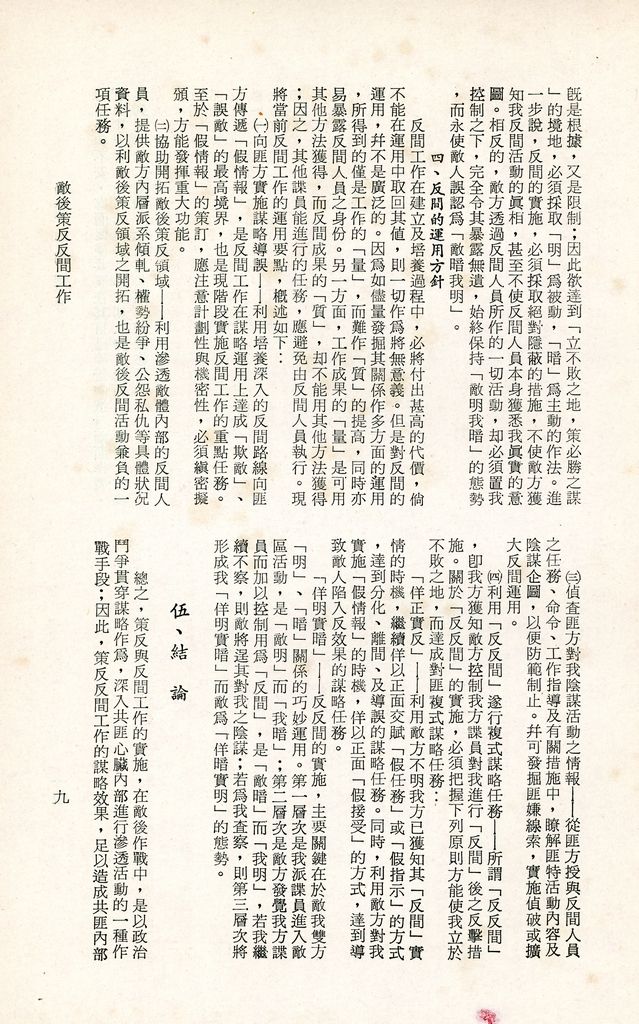 旣是根據，又是限制；因此欲達到「立不敗之地，策必勝之謀
」的境地，必須採取「明」爲被動，「暗」爲主動的作法。進
一步說，反間的實施，必須採取絕對隱蔽的措施，不使敵方獲
知我反間活動的眞相，甚至不使反間人員本身獲悉我眞實的意
圖。相反的，敵方透過反間人員所作的一切活動，却必須置我
控制之下，完全令其暴露無遺，始終保持「敵明我暗」的態勢
，而永使敵人誤認爲「敵暗我明」。
四、反間的運用方針
反間工作在建立及培養過程中，必將付出甚高的代價，倘
不能在運用中取回其値，則一切作爲將無意義。但是對反間的
運用，幷不是廣泛的。因爲如儘量發掘其關係作多方面的運用
，所得到的僅是工作的「量」，而難作「質」的提高，同時亦
易暴露反間人員之身份。另一方面，工作成果的「量」是可用
其他方法獲得，而反間成果的「質」，却不能用其他方法獲得
；因之，其他諜員能進行的任務，應避免由反間人員執行。現
將當前反間工作的運用要點，槪述如下：
㈠向匪方實施謀略導誤——利用培養深入的反間路線向匪
方傳遞「假情報」，是反間工作在謀略運用上達成「欺敵」、
「誤敵」的最高境界，也是現階段實施反間工作的重點任務。
至於「假情報」的策訂，應注意計劃性與機密性，必須縝密擬
頒，方能發揮重大功能。
㈡協助開拓敵後策反領域——利用滲透敵體內部的反間人
員，提供敵方內層派系傾軋、權勢紛爭、公怨私仇等具體狀况
資料，以利敵後策反領域之開拓，也是敵後反間活動兼負的一
項任務。
敵後策反反間工作
㈢偵查匪方對我陰謀活動之情報——從匪方授與反間人員
之任務、命令、工作指導及有關措施中，瞭解匪特活動內容及
陰謀企圖，以便防範制止。幷可發掘匪嫌線索，實施偵破或擴
大反間運用。
㈣利用「反反間」遂行複式謀略任務——所謂「反反間」
，卽我方獲知敵方控制我方諜員對我進行「反間」後之反擊措
施。關於「反反間」的實施，必須把握下列原則方能使我立於
不敗之地，而達成對匪複式謀略任務：
「佯正實反」——利用敵方不明我方已獲知其「反間」實
情的時機，繼續佯以正面交賦「假任務」或「假指示」的方式
，達到分化、離間、及導誤的謀略任務。同時，利用敵方對我
實施「假情報」的時機，佯以正面「假接受」的方式，達到導
致敵人陷入反效果的謀略任務。
「佯明實暗」——反反間的實施，主要關鍵在於敵我雙方
「明」、「暗」關係的巧妙運用。第一層次是我派諜員進入敵
區活動，是「敵明」而「我暗」；第二層次是敵方發覺我方諜
員而加以控制用爲「反間」，是「敵暗」而「我明」，若我繼
續不察，則敵將逞其對我之陰謀；若爲我査察，則第三層次將
形成我「佯明實暗」而敵爲「佯暗實明」的態勢。
伍、結　論
總之，策反與反間工作的實施，在敵後作戰中，是以政治
鬥爭貫穿謀略作爲，深入共匪心臟內部進行滲透活動的一種作
戰手段；因此，策反反間工作的謀略效果，足以造成共匪內部
九